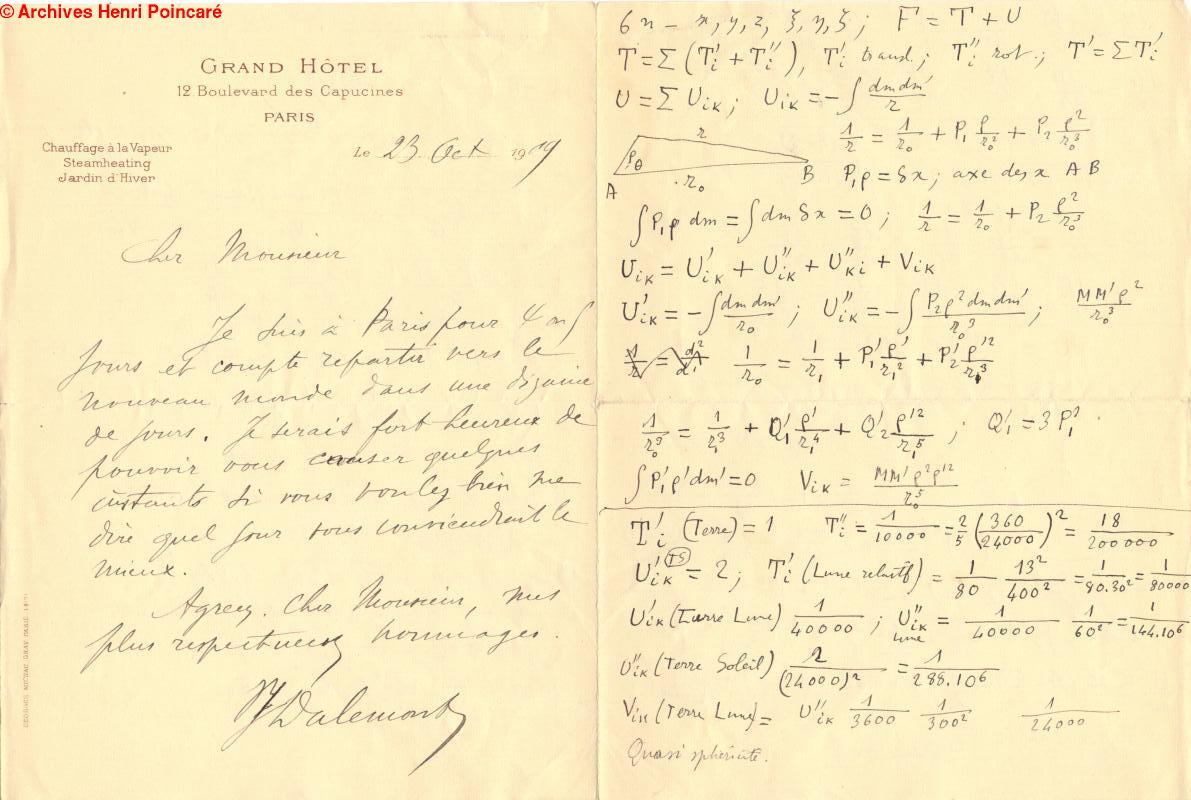 © Archives Henri Poincaré
GRAND HÔTEL
12 Boulevard des Capucines
PARIS
Chauffage à la Vapeur
Steamheating
Jardin d'Hiver
Le 23 Oct 1909
Cher Monsieur
Je suis à Paris pour 4 ou 5
jours et compte repartir vers le
nouveau monde dans une dizaine
de jours. Je serais fort heureux de
pouvoir vous causer quelques
instants si vous voulez bien me
dire quel jour vous conviendrait le
mieux.
Agréez, Cher Monsieur, mes
plus respectueux hommages.
Dalemont
6n - x, y, z, ξ, η, ζ ; F = T + U
T = Σ (T'i + T''i), T'i transl. ; T''i rot. ; T' = Σ T'i
U = Σ Uiκ ; Uiκ = - ∫ dm dm'/r
1/r = 1/r₀ + P₁ ρ/r₀² + P₂ ρ²/r₀³
r
ρ θ
A r₀ B
P₁ρ = δx ; axe des x A B
∫ P₁ρ dm = ∫ dm δx = 0 ; 1/r = 1/r₀ + P₂ ρ²/r₀³
Uiκ = U'iκ + U''iκ + U''κi + Viκ
U'iκ = - ∫ dm dm'/r₀ ; U''iκ = - ∫ P₂ρ² dm dm'/r₀³ ; MM'ρ²/r₀³
1/r₀ = 1/r₁ + P'₁ ρ'/r₁² + P'₂ ρ'²/r₁³
1/r₀³ = 1/r₁³ + Q'₁ ρ'/r₁⁴ + Q'₂ ρ'²/r₁⁵ ; Q'₁ = 3 P'₁
∫ P'₁ρ' dm' = 0 Viκ = MM'ρ²ρ'²/r₀⁵
T'i (Terre) = 1 T''i = 1/10000 = 2/5 (360/24000)² = 18/200000
U'iκ TS = 2 ; T'i (Lune relatif) = 1/80 13²/400² = 1/80.30² = 1/80000
U'iκ (Terre Lune) 1/40000 ; U''iκ Lune = 1/40000 1/60² = 1/144.10⁶
U''iκ (Terre Soleil) 2/(24000)² = 1/288.10⁶
Viκ (Terre Lune) = U''iκ 1/3600 1/300² 1/24000
Quasi sphéricité.